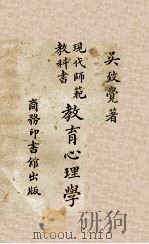 吳致覺著
現代師範
教科書
教育心理學
商務印書館出版